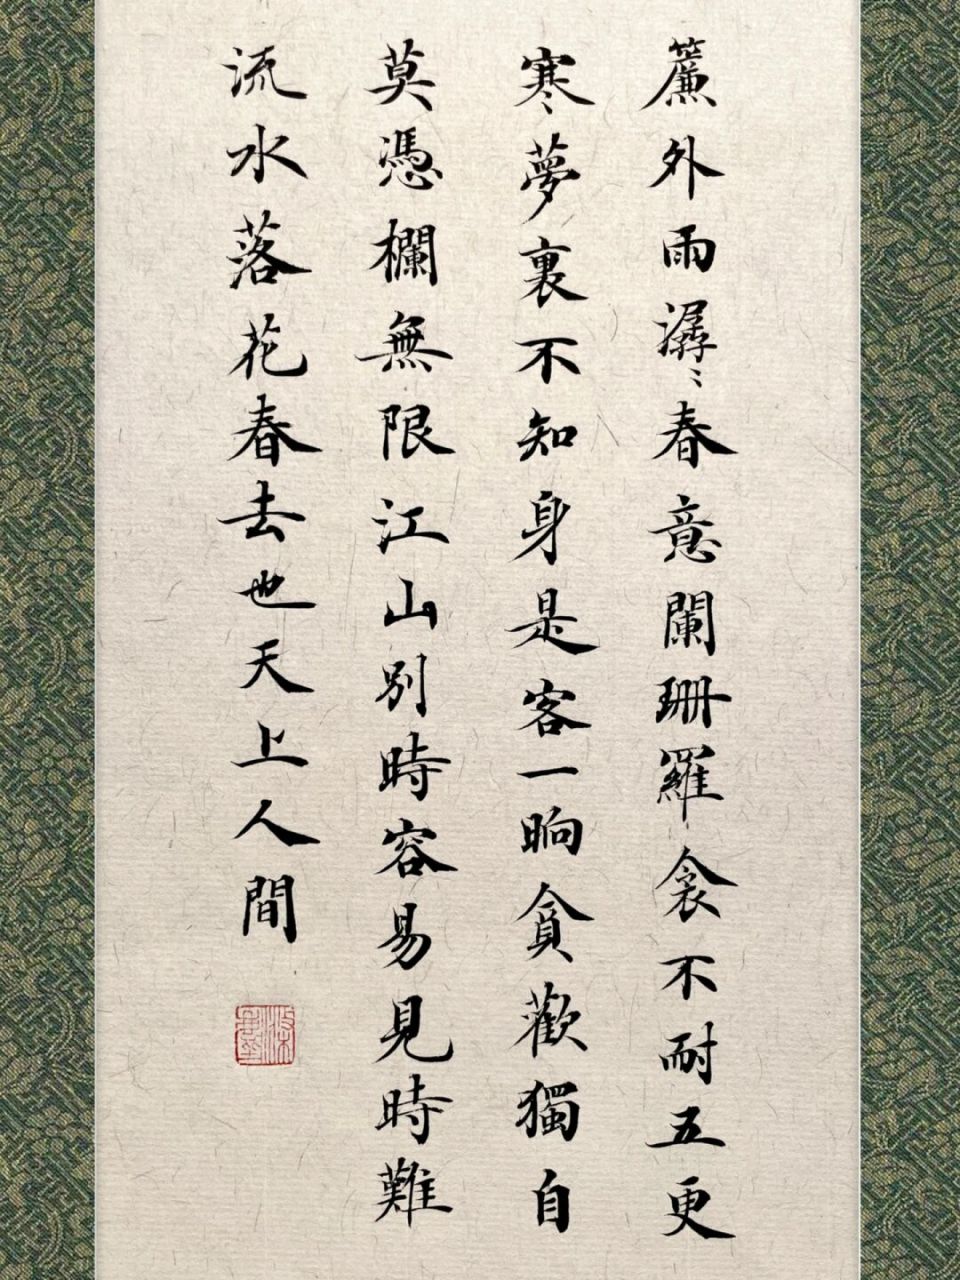 簾外雨潺〻春意闌珊羅衾不耐五更
寒夢裏不知身是客一晌貪歡獨自
莫憑欄無限江山別時容易見時難
流水落花春去也天上人間